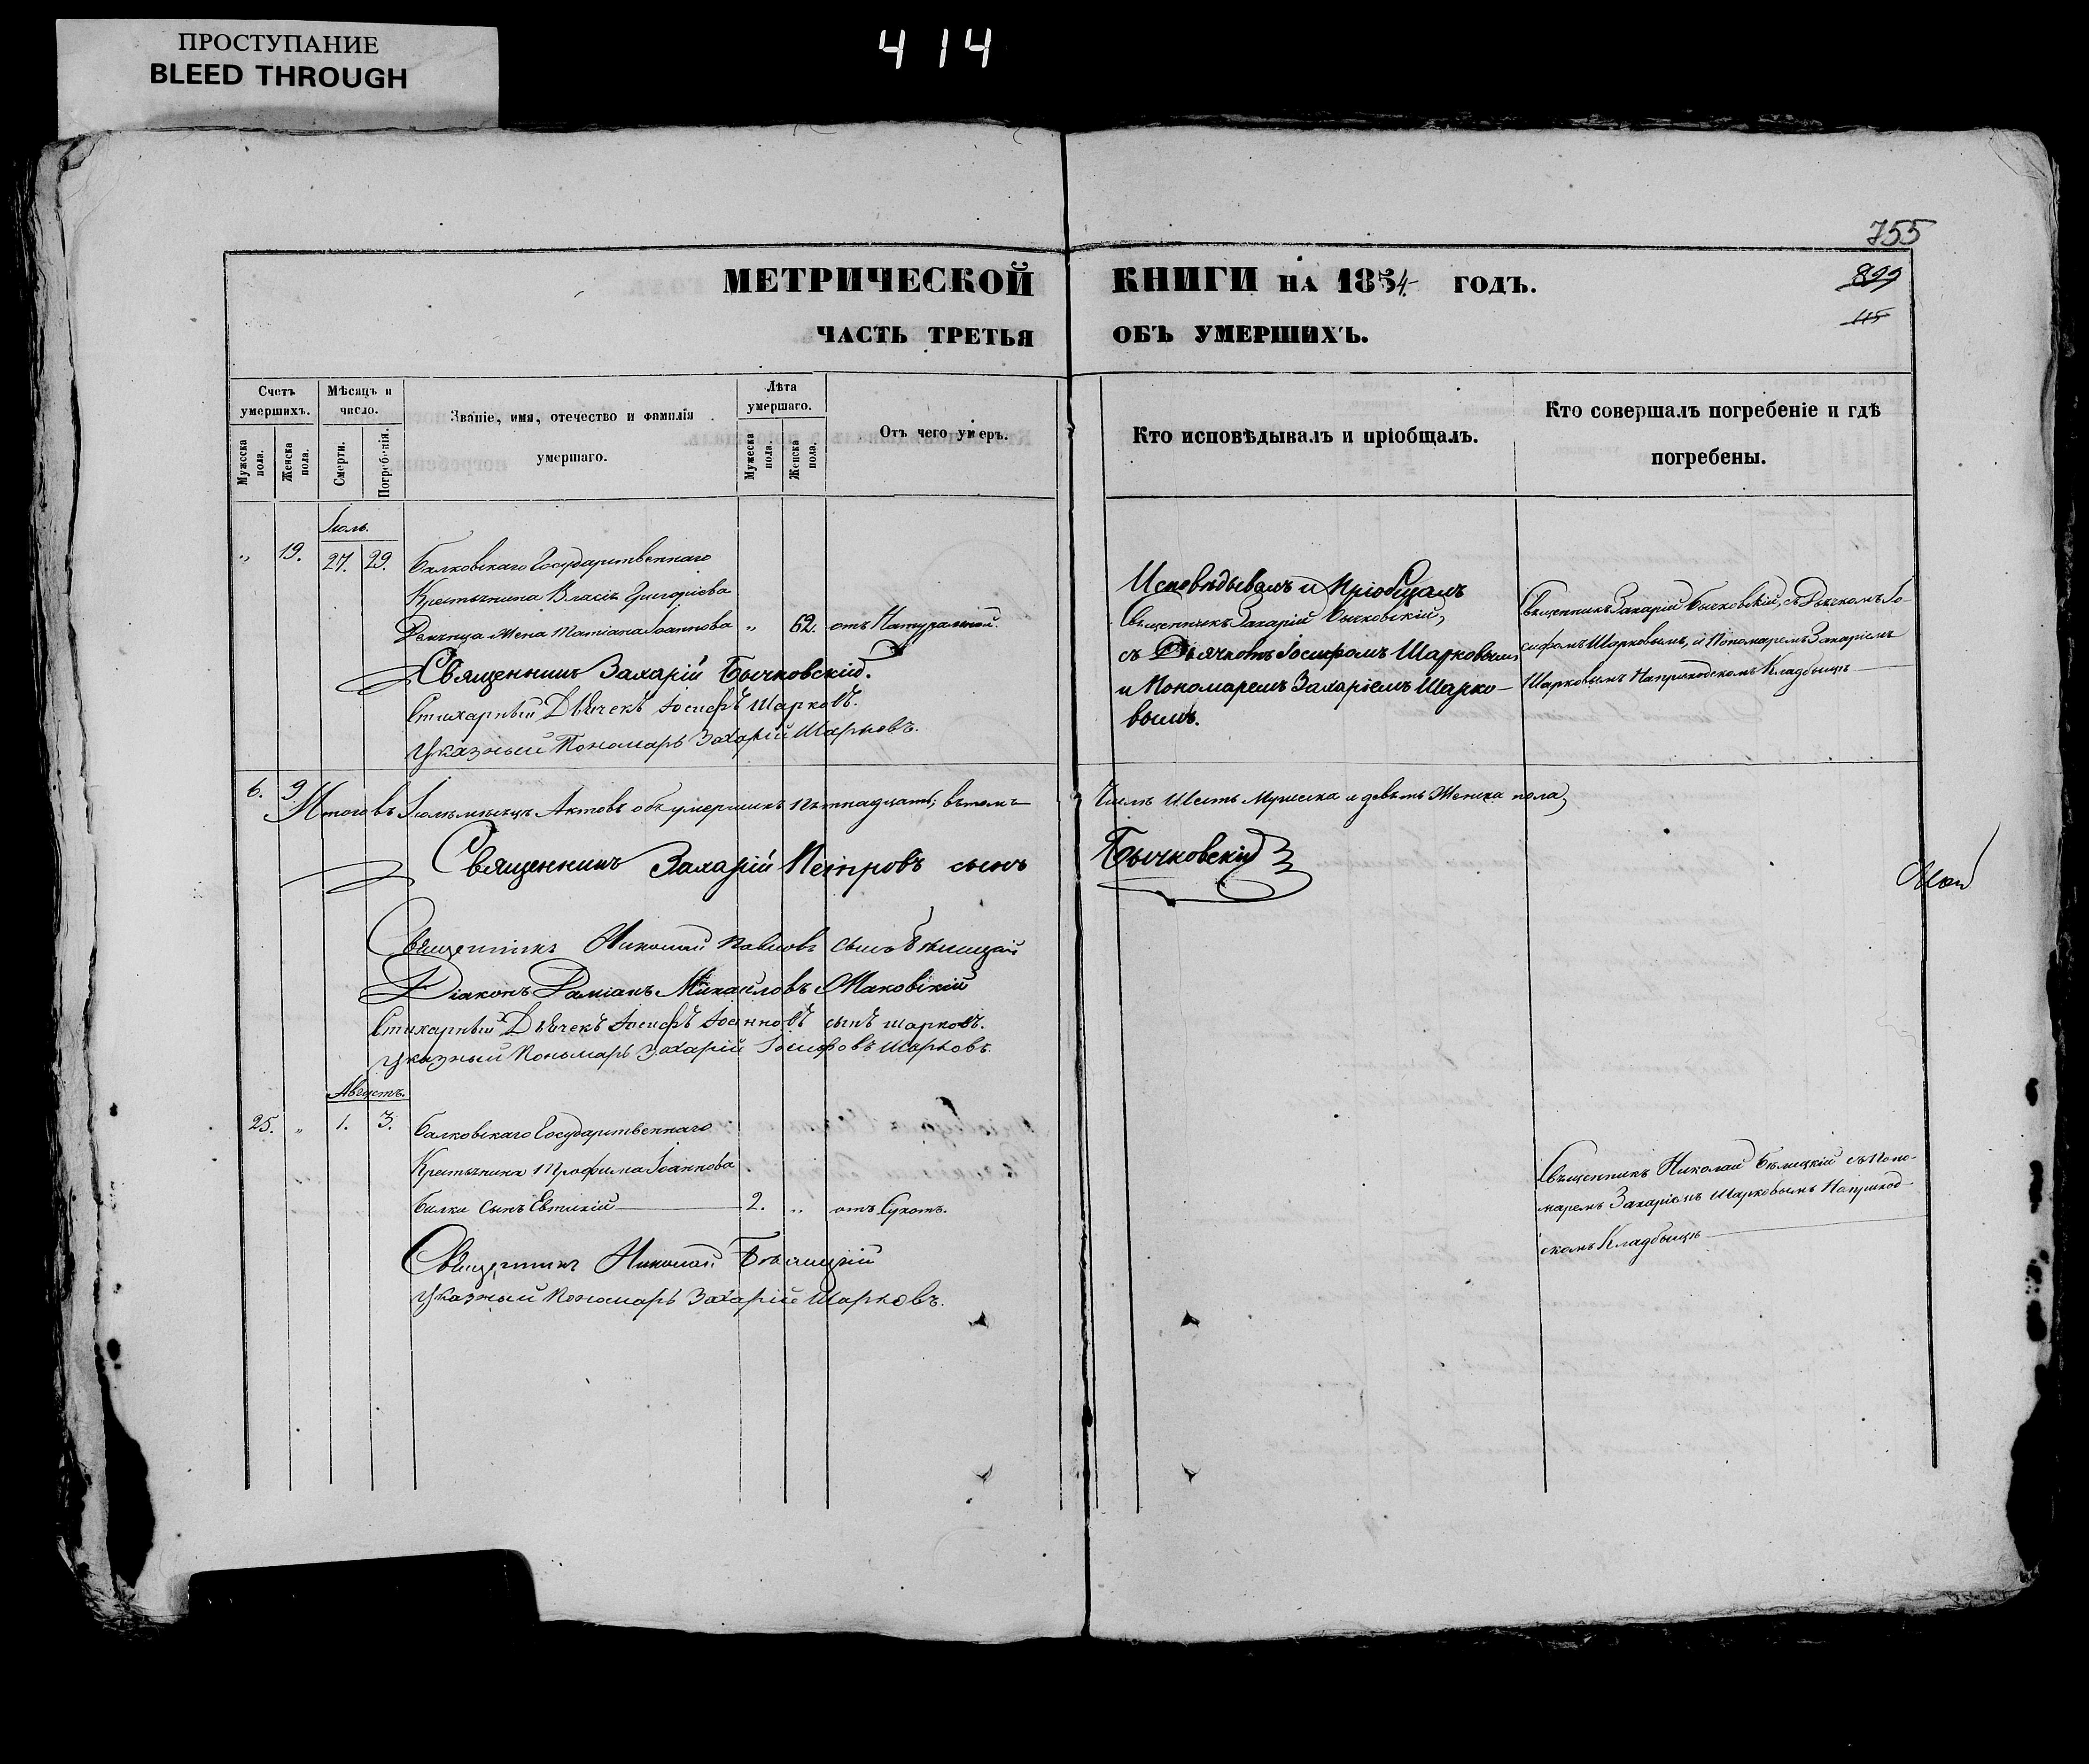 ПРОСТУПАНИЕ
BLEED THROUGH
414
755
МЕТРИЧЕСКОЙ КНИГИ НА 1854 ГОДЪ.
899
115
ЧАСТЬ ТРЕТЬЯ ОБЪ УМЕРШИХЪ.
Счетъ умершихъ.
Мужеска пола.
Женска пола.
Мѣсяцъ и число.
Смерти.
Погребенія.
Званіе, имя, отечество и фамилія
умершаго.
Лѣта умершаго.
Мужеска пола.
Женска пола.
Отъ чего умеръ.
Кто исповѣдывалъ и пріобщалъ.
Кто совершалъ погребеніе и гдѣ
погребены.
Іюль.
„ 19. 27. 29. Балковскаго Государственнаго
Крестьянина Власія Григоріева
жена Татіана Іоаннова „ 62. отъ Натуральной.
Священникъ Захарій Бычковскій.
Стихарный Дьячекъ Іосифъ Шарковъ.
Указный Пономарь Захарій Шарковъ.
Исповѣдывалъ и Пріобщалъ
Священникъ Захарій Бычковскій,
съ Дьячкомъ Іосифомъ Шарковымъ
и Пономаремъ Захаріемъ Шарко-
вымъ.
Священникъ Захарій Бычковскій, съ Дьячкомъ Іо-
сифомъ Шарковымъ, и Пономаремъ Захаріемъ
Шарковымъ На приходскомъ Кладбищѣ
6. 9. Итого въ Іюлѣ мѣсяцѣ Актовъ объ умершихъ пятнадцать, въ томъ
Числѣ Шесть Мужеска и девять Женска пола,
Священникъ Захарій Петровъ сынъ Бычковскій
Священникъ Николай Павловъ сынъ Бѣлицкій
Діаконъ Даміанъ Михайловъ Маковскій
Стихарный Дьячекъ Іосифъ Іоанновъ сынъ Шарковъ.
Указный Пономарь Захарій Іосифовъ Шарковъ.
Августъ.
25. „ 1. 3. Балковскаго Государственнаго
Крестьянина Трофима Іоаннова
Балки сынъ Евтихій 2. „ отъ Сухотъ.
Священникъ Николай Бѣлицкій
Указный Пономарь Захарій Шарковъ.
Священникъ Николай Бѣлицкій съ Поно-
маремъ Захаріемъ Шарковымъ На приход-
скомъ Кладбищѣ